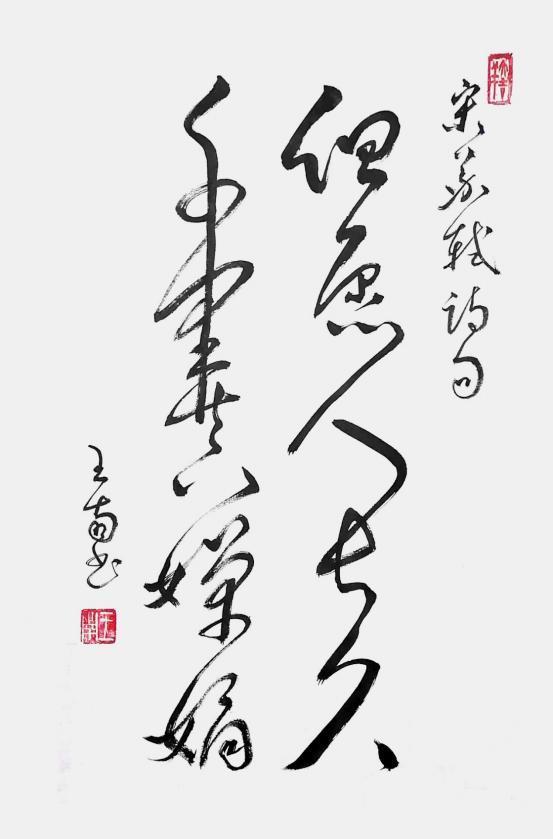 宋苏轼诗句
但愿人长久
千里共婵娟
王南书